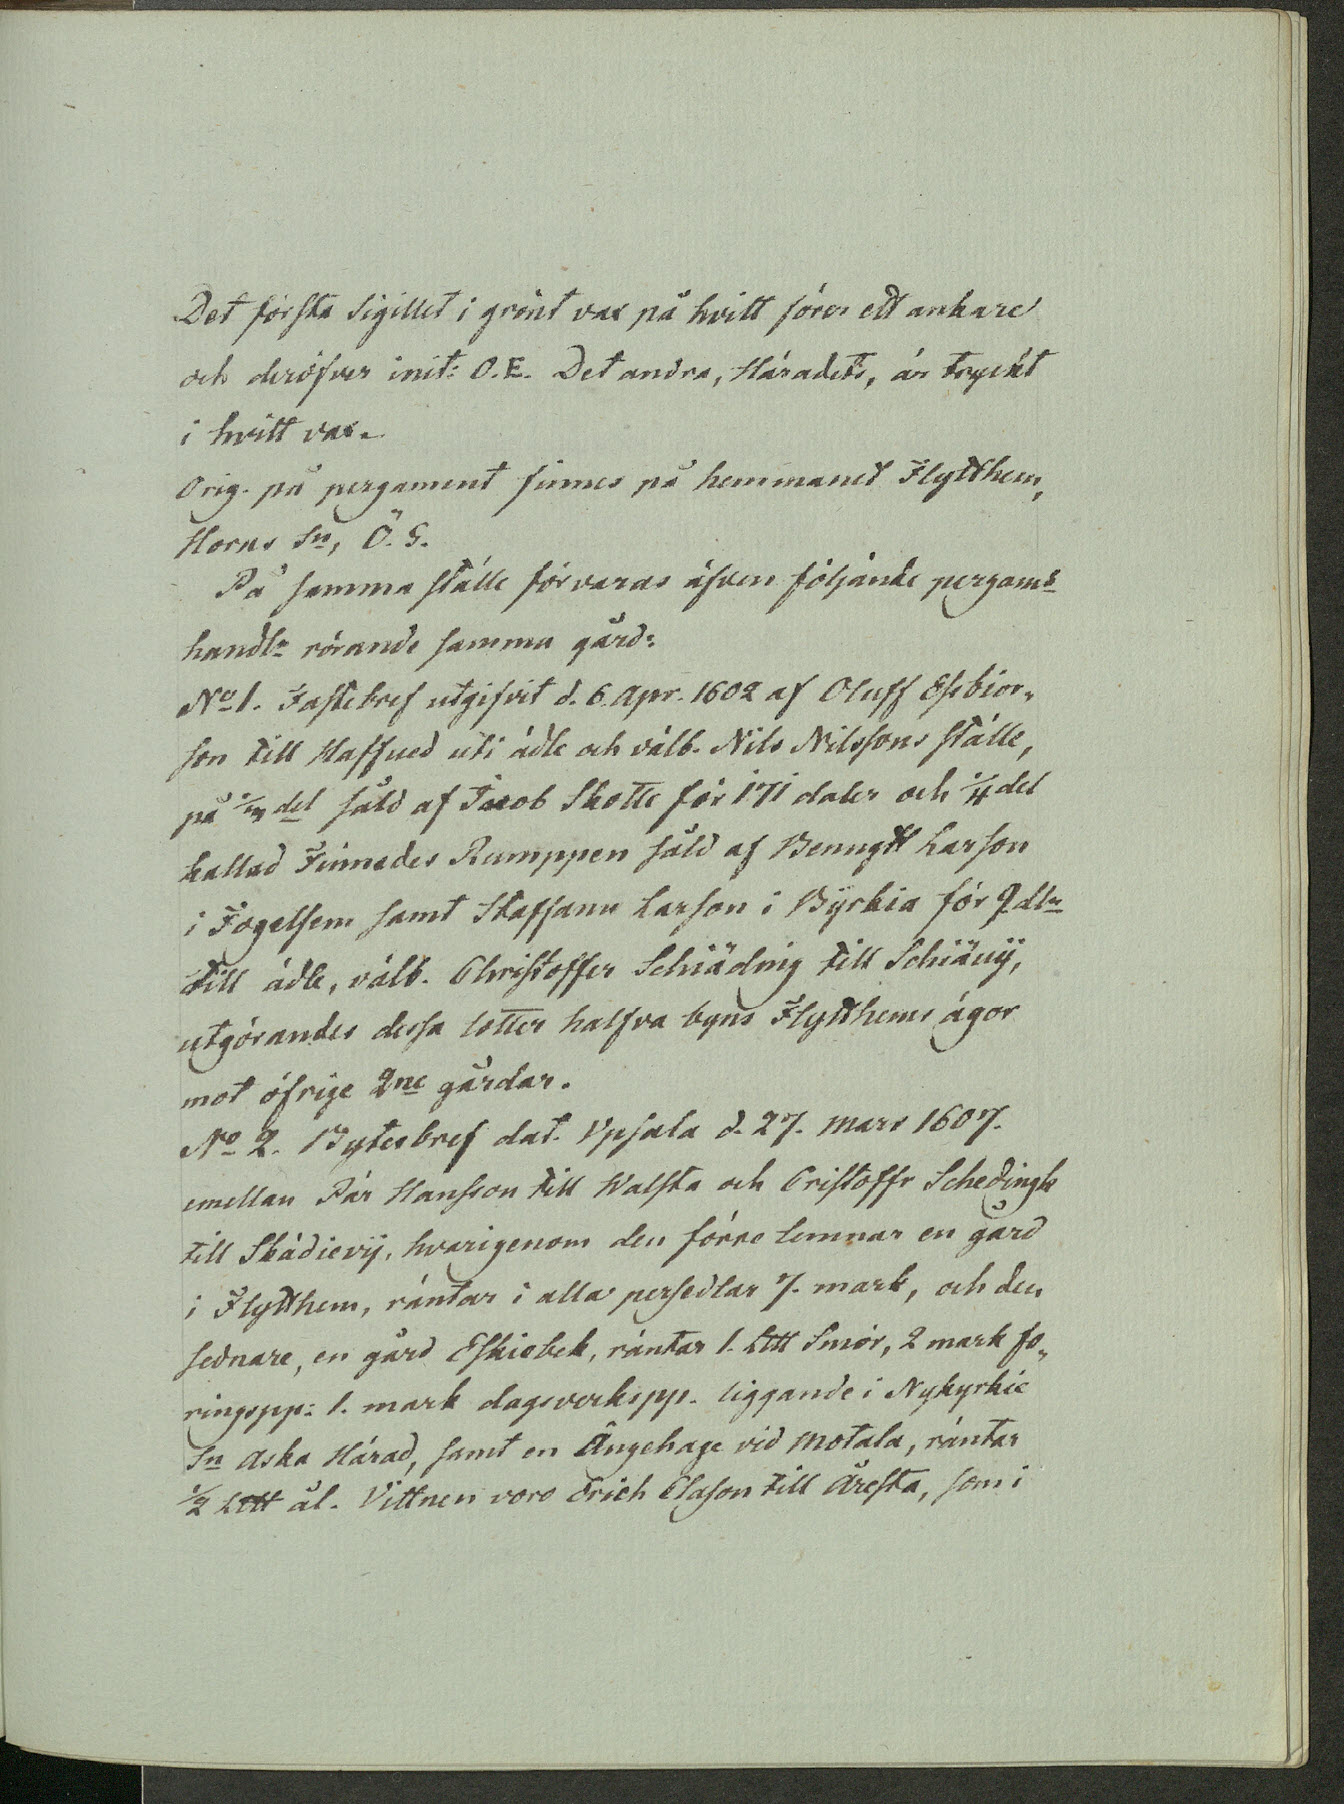 Det första Sigillet i grönt vax på hvitt förer ett ankare
och deröfver init: O.E. Det andra, Häradets, är tryckt
i hvitt vax.
Orig. på pergament finnes på hemmanet Flytthem,
Horns Sn, Ö.G.
På samma ställe förvaras äfven följande pergams
handlr rörande samma gård:
No 1. Fastebref utgifvit d. 6. Apr. 1602 af Oluff Esebior„
son till Haffued uti ädle och välb. Nils Nilssons ställe,
på del såld af Jacob Skotte för 171 daler och 1/4 del
kallad Finnedes Rumppen såld af Benngtt Larson
i Fogelsem samt Staffann Larson i Byrkia för 9 dlr
till ädle, välb. Christoffer Schiäding till Schiäuij,
utgörandes dessa lotter halfva byns Flytthems ägor
mot öfrige 2ne gårdar.
No 2. Bytesbref dat. Vpsala d. 27. Mars 1607.
emellan Pär Hansson till Walsta och Cristoffr Schedingk
till Skädievij, hvarigenom den förre lemnar en gård
i Flytthem, räntar i alla persedlar 7. mark, och den
sednare, en gård Eskiebek, räntar 1. Ltt Smör, 2 mark fo„
ringspp: 1. mark dagsverkspp. liggande i Nykyrkie
Sn Aska Härad, samt en Ängehage vid Motala, räntar
1/2 Ltt ål. Vittnen voro Erich Elason till Åresta, som i